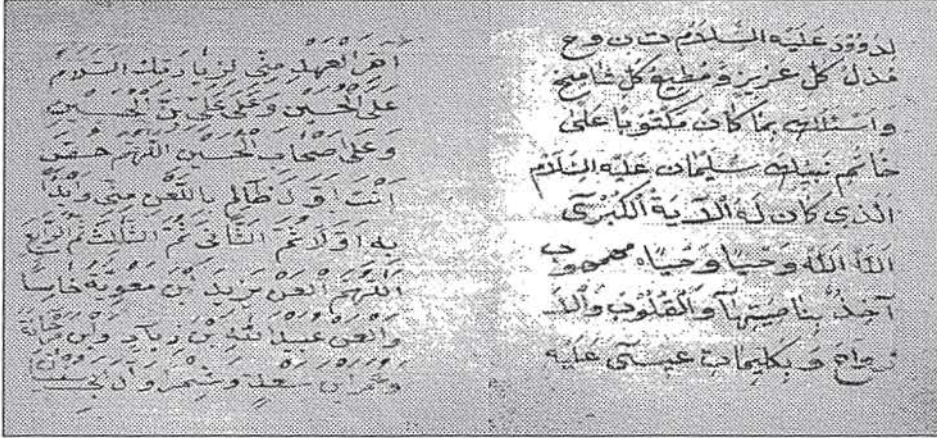 لدووُدَ عَلَيْهِ السَّلَامُ ت ن و ح
مُذِلُّ كُلَّ عَزِيزٍ وَمُطِيعُ كُلَّ شَامِخٍ
وَاسْئَلُكَ بِمَا كَانَ مَكْتُوبًا عَلَى
خَاتَمِ نَبِيِّكَ سُلَيْمَان عَلَيْهِ السَّلَامُ
الَّذِي كَانَ لَهُ الْآيَةُ الْكُبْرَى
اللهُ وَحْيًا وَحْيًا
آخِذٌ بِنَاصِيَتِهَا وَالْقُلُوبِ وَالْا
رْوَاحِ وَبِكَلِيمَاتِ عِيسَى عَلَيْهِ
آخِرَ الْعَهْدِ مِنِّي لِزِيَارَتِكَ السَّلَامُ
عَلَى الْحُسَيْنِ وَعَلَى عَلِيِّ بْنِ الْحُسَيْنِ
وَعَلَى اَصْحَابِ الْحُسَيْنِ اللّهُمَّ خُصَّ
اَنْتَ اَوَّلَ ظَالِمٍ بِاللَّعْنِ مِنِّي وَابْدَا
بِهِ اَوَّلًا ثُمَّ الثَّانِيَ ثُمَّ الثَّلِثَ ثُمَّ الرَّابِعَ
اَللّهُمَّ الْعَنْ يَزِيدَ ابْنَ مَعُوِيَةَ خَامِسًا
وَالْعَنْ عُبَيْدَ اللهِ بْنَ زِيَادٍ وَابْنَ مَرْجَانَةَ
وَعُمَرَ ابْنَ سَعْدٍ وَشِمْرًا وَآلَ